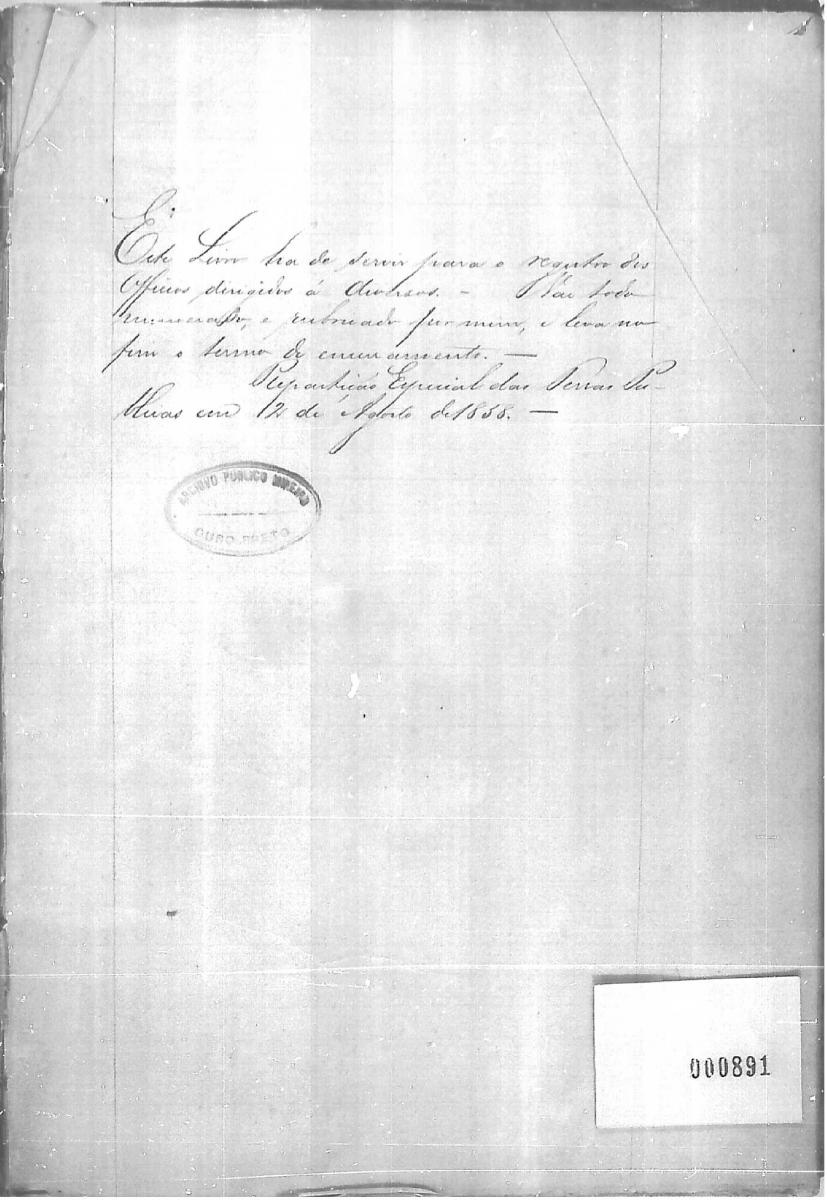 Este Livro ha de servir para o registro dos
Officios dirigidos á diversos. – Vai todo
numerado, e rubricado por mim, e leva no
fim o termo de encerramento. —
Repartição Especial das Terras Pu-
blicas em 12 de Agosto de 1858. —
ARCHIVO PUBLICO MINEIRO
OURO PRETO
000891